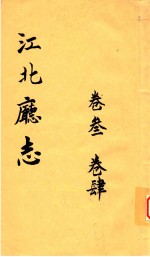 江北廳志
卷叄 卷肆